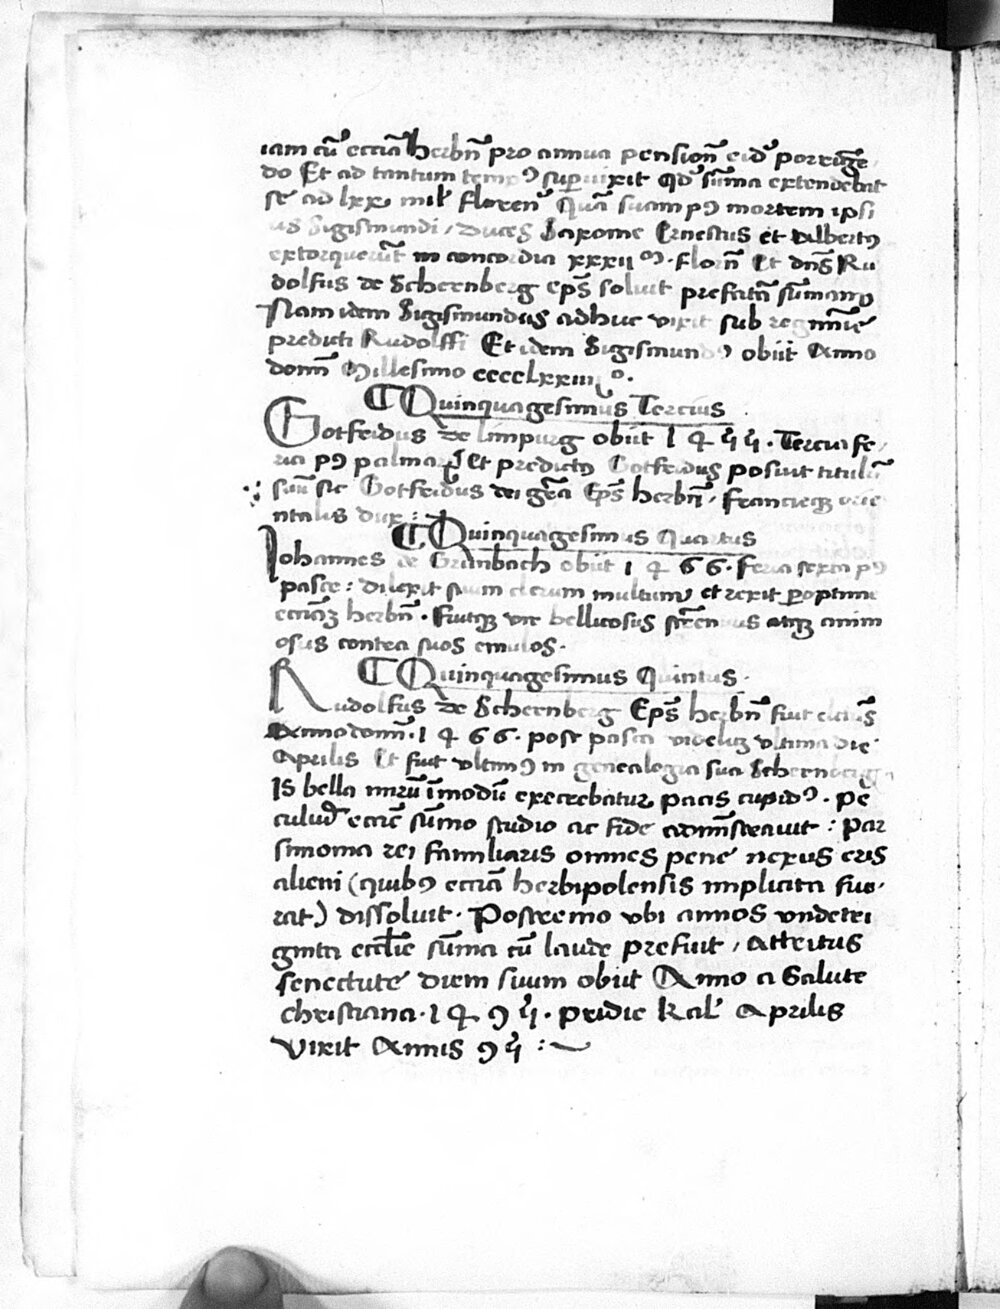 iam cū eccīa herbn̄ pro annua pension̄ eid' porrige
do Et ad tantum temp9 supervixit qd' sūma extendebat
se ad lxx mil' floren' Quā suam p9 mortem ipsi
us Sigismundi / duces Saxonie Ernestus et Albert9
extorquerūt in concordia xxxii m. florn̄ Et dn̄s Ru
dolfus de Scherenberg ep̄s soluit prefatā sūmam
Nam idem Sigismundus adhuc vixit sub regimīe
predicti Rudolffi Et idem Sigismund9 obiit Anno
domn̄ Millesimo cccclxxiiij°.
¶ Quinquagesimus Tercius
Gotfridus de limpurg obiit 1455. Tercia fe
ria p9 palmarū Et predict9 Gotfridus posuit titulū
suū sic Gotfridus dei grā Ep̄s herbn̄. Francieqꝫ orie
ntalis dux:
¶ Quinquagesimus Quartus
Johannes de Grunbach obiit 1466. feria sexta p9
pasce: dilexit suum clerum multum et rexit peroptime
eccīaꝫ herbn̄. Fuitqꝫ vir bellicosus strēnuus atqꝫ anim
osus contra suos emulos.
¶ Quinquagesimus Quintus.
Rudolfus de Scherenberg Ep̄s herbn̄ fuit elctūs
Anno domn̄. 1466. post pasca videlicꝫ vltima die
Aprilis Et fuit vltim9 in genealogia sua Scherenberg.
Is bella mirū īmodū execrebatur pacis cupid9. Pe
culiūd' eccīe sūmo studio ac fide admīstrauit: Par
simonia rei familiaris omnes pene nexus eris
alieni (quib9 eccīa herbipolensis implicita fue.
rat) dissoluit. Postremo vbi annos vndetri
ginta eccl̄ie sūma cū laude prefuit, attritus
senectute diem suum obiit Anno a Salute
christiana. 1495. pridie Kal' Aprilis
vixit Annis 95 :~